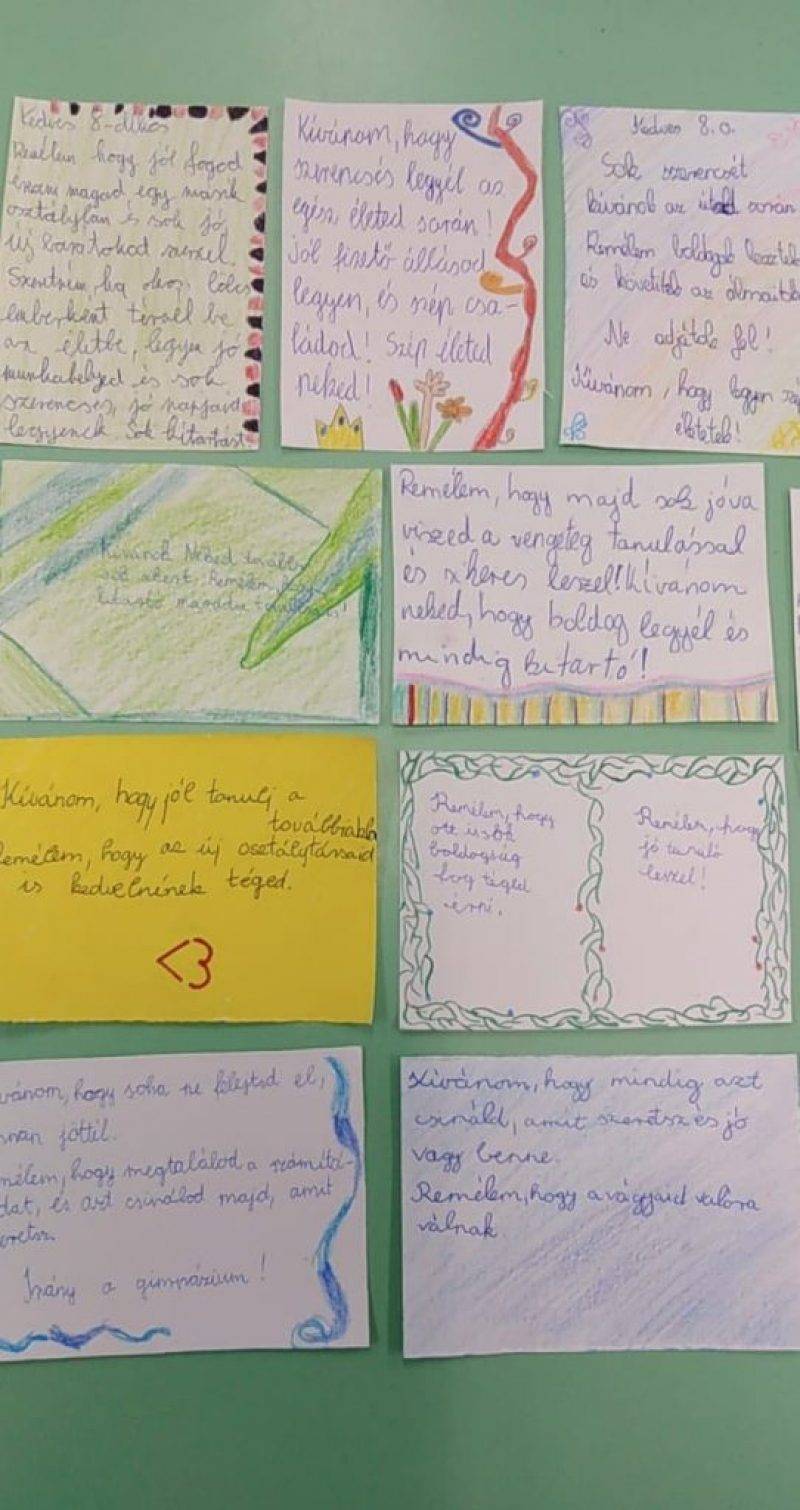 Kedves 8-dikos
Remélem hogy jól fogod
érezni magad egy másik
osztályban és sok jó
új barátokod szerzel.
ha okos, bölcs
emberként térnél be
az életbe, legyen jó
munkahelyed és sok
szerencsés, jó napjaid
legyenek. Sok kitartást
Kívánom, hogy
szerencsés legyél az
egész életed során!
Jól fizető állásod
legyen, és szép csa-
ládod! Szép életed
neked!
Kedves 8.o.
Sok szerencsét
kívánok az során
Remélem boldogok lesztek
és követitek az álmaitok
Ne adjátok fel!
Kívánom, hogy legyen
életetek!
Kívánok Neked további
sok sikert. Remélem,
kitartó maradsz
Remélem, hogy majd sok jóva
viszed a vengeteg tanulással
és sikeres leszel! Kívánom
neked, hogy boldog legyél és
mindig kitartó!
Kívánom, hogy jól tanulj a
továbbiakb
Remélem, hogy az új osztálytársaid
is kedvelnének téged.
<3
Remélem, hogy
ott is sok
boldogság
fog téged
érni.
Remélem, hogy
jó tanuló
leszel!
vánom, hogy soha ne felejtsd el,
nnan jöttél.
mélem, hogy megtalálod a számítá-
dat, és azt csinálod majd, amit
eretsz.
Irány a gimnázium!
Kívánom, hogy mindig azt
csináld, amit szeretsz és jó
vagy benne.
Remélem, hogy a vágyaid valóra
válnak.